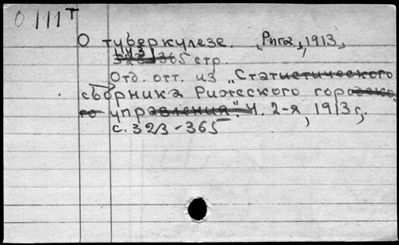 О 111 Т
О туберкулезе. [Рига, 1913]
323-365 стр.
Отд. отт. из "Статистического
сборника Рижского городско-
го управления". Ч. 2-я, 1913 г.
с. 323-365